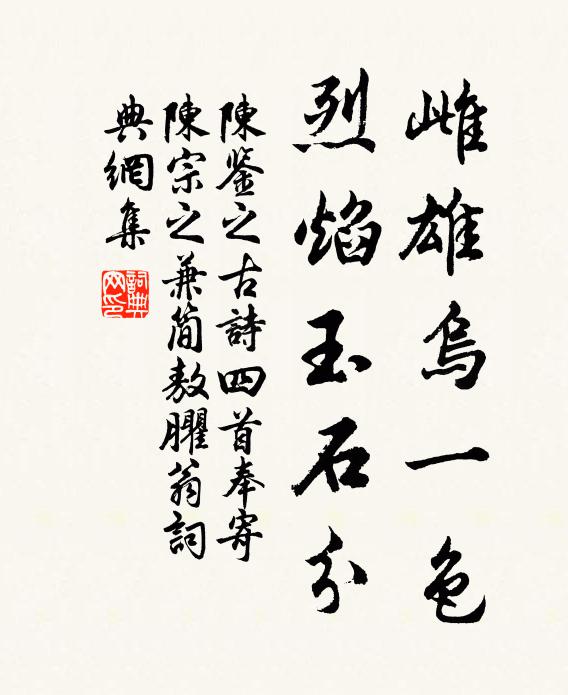 雌雄烏一色
烈焰玉石分
陳鉴之古詩四首奉寄
陳宗之兼简敖臞翁詞
典網集
詞典网印